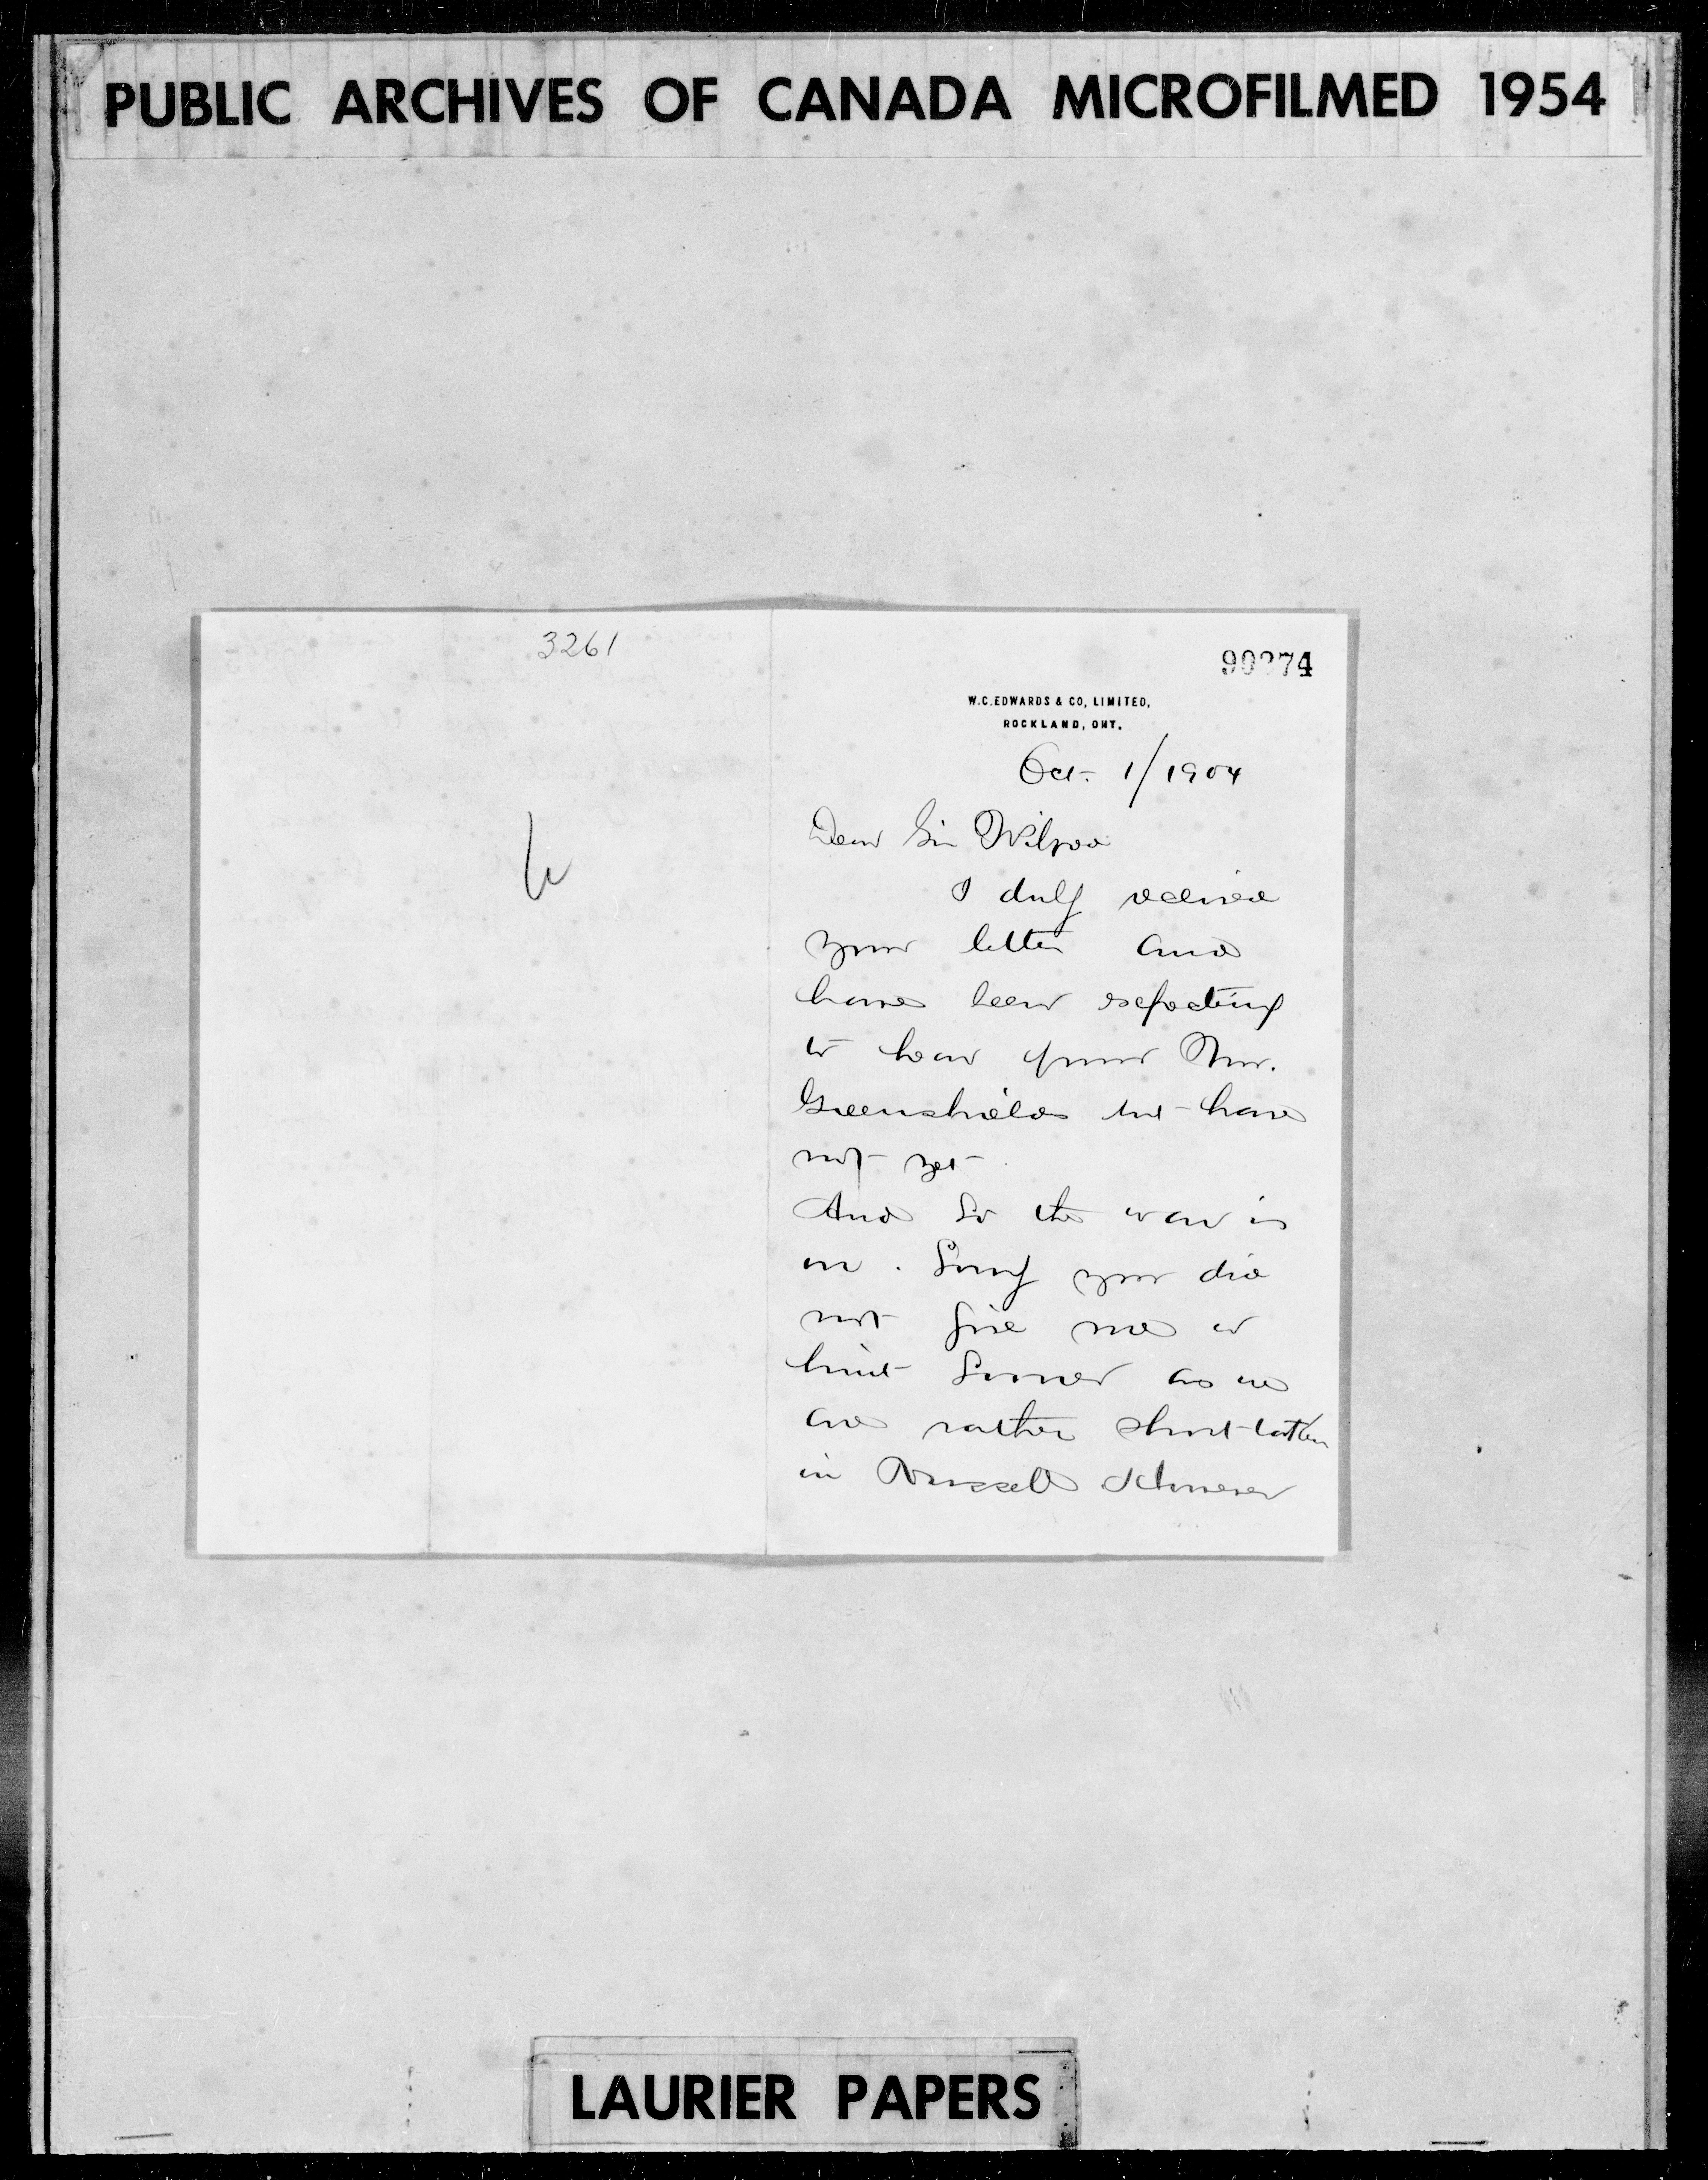 PUBLIC ARCHIVES OF CANADA MICROFILMED 1954
3261
90274
W.C. EDWARDS & CO, LIMITED,
ROCKLAND, ONT.
Oct. 1/1904
Dear Sir Wilfrid
I duly received
your letter and
have been expecting
to hear from Mr.
Greenshields but have
not yet
And so the war is
on. Sorry you did
not give me a
hint sooner as we
are rather short taken
in Russell However
LAURIER PAPERS